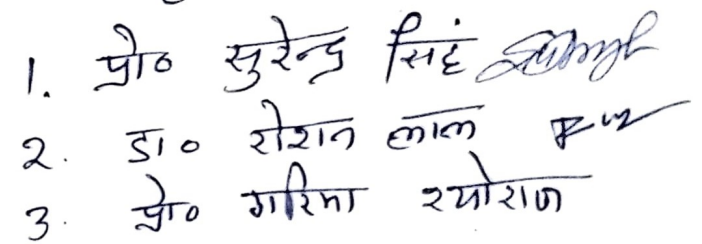 1. प्रो० सुरेन्द्र सिहं
2. डा० रोशन लाल
3. प्रो० गरिमा श्योराण